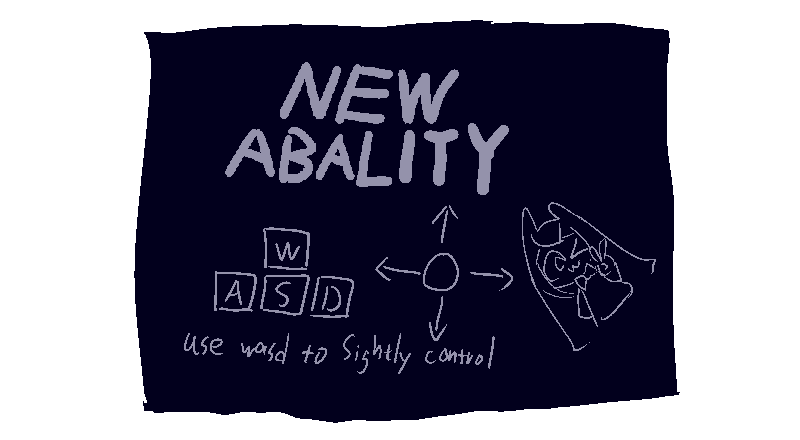 NEW
ABALITY
W
A S D
use wasd to Sightly control